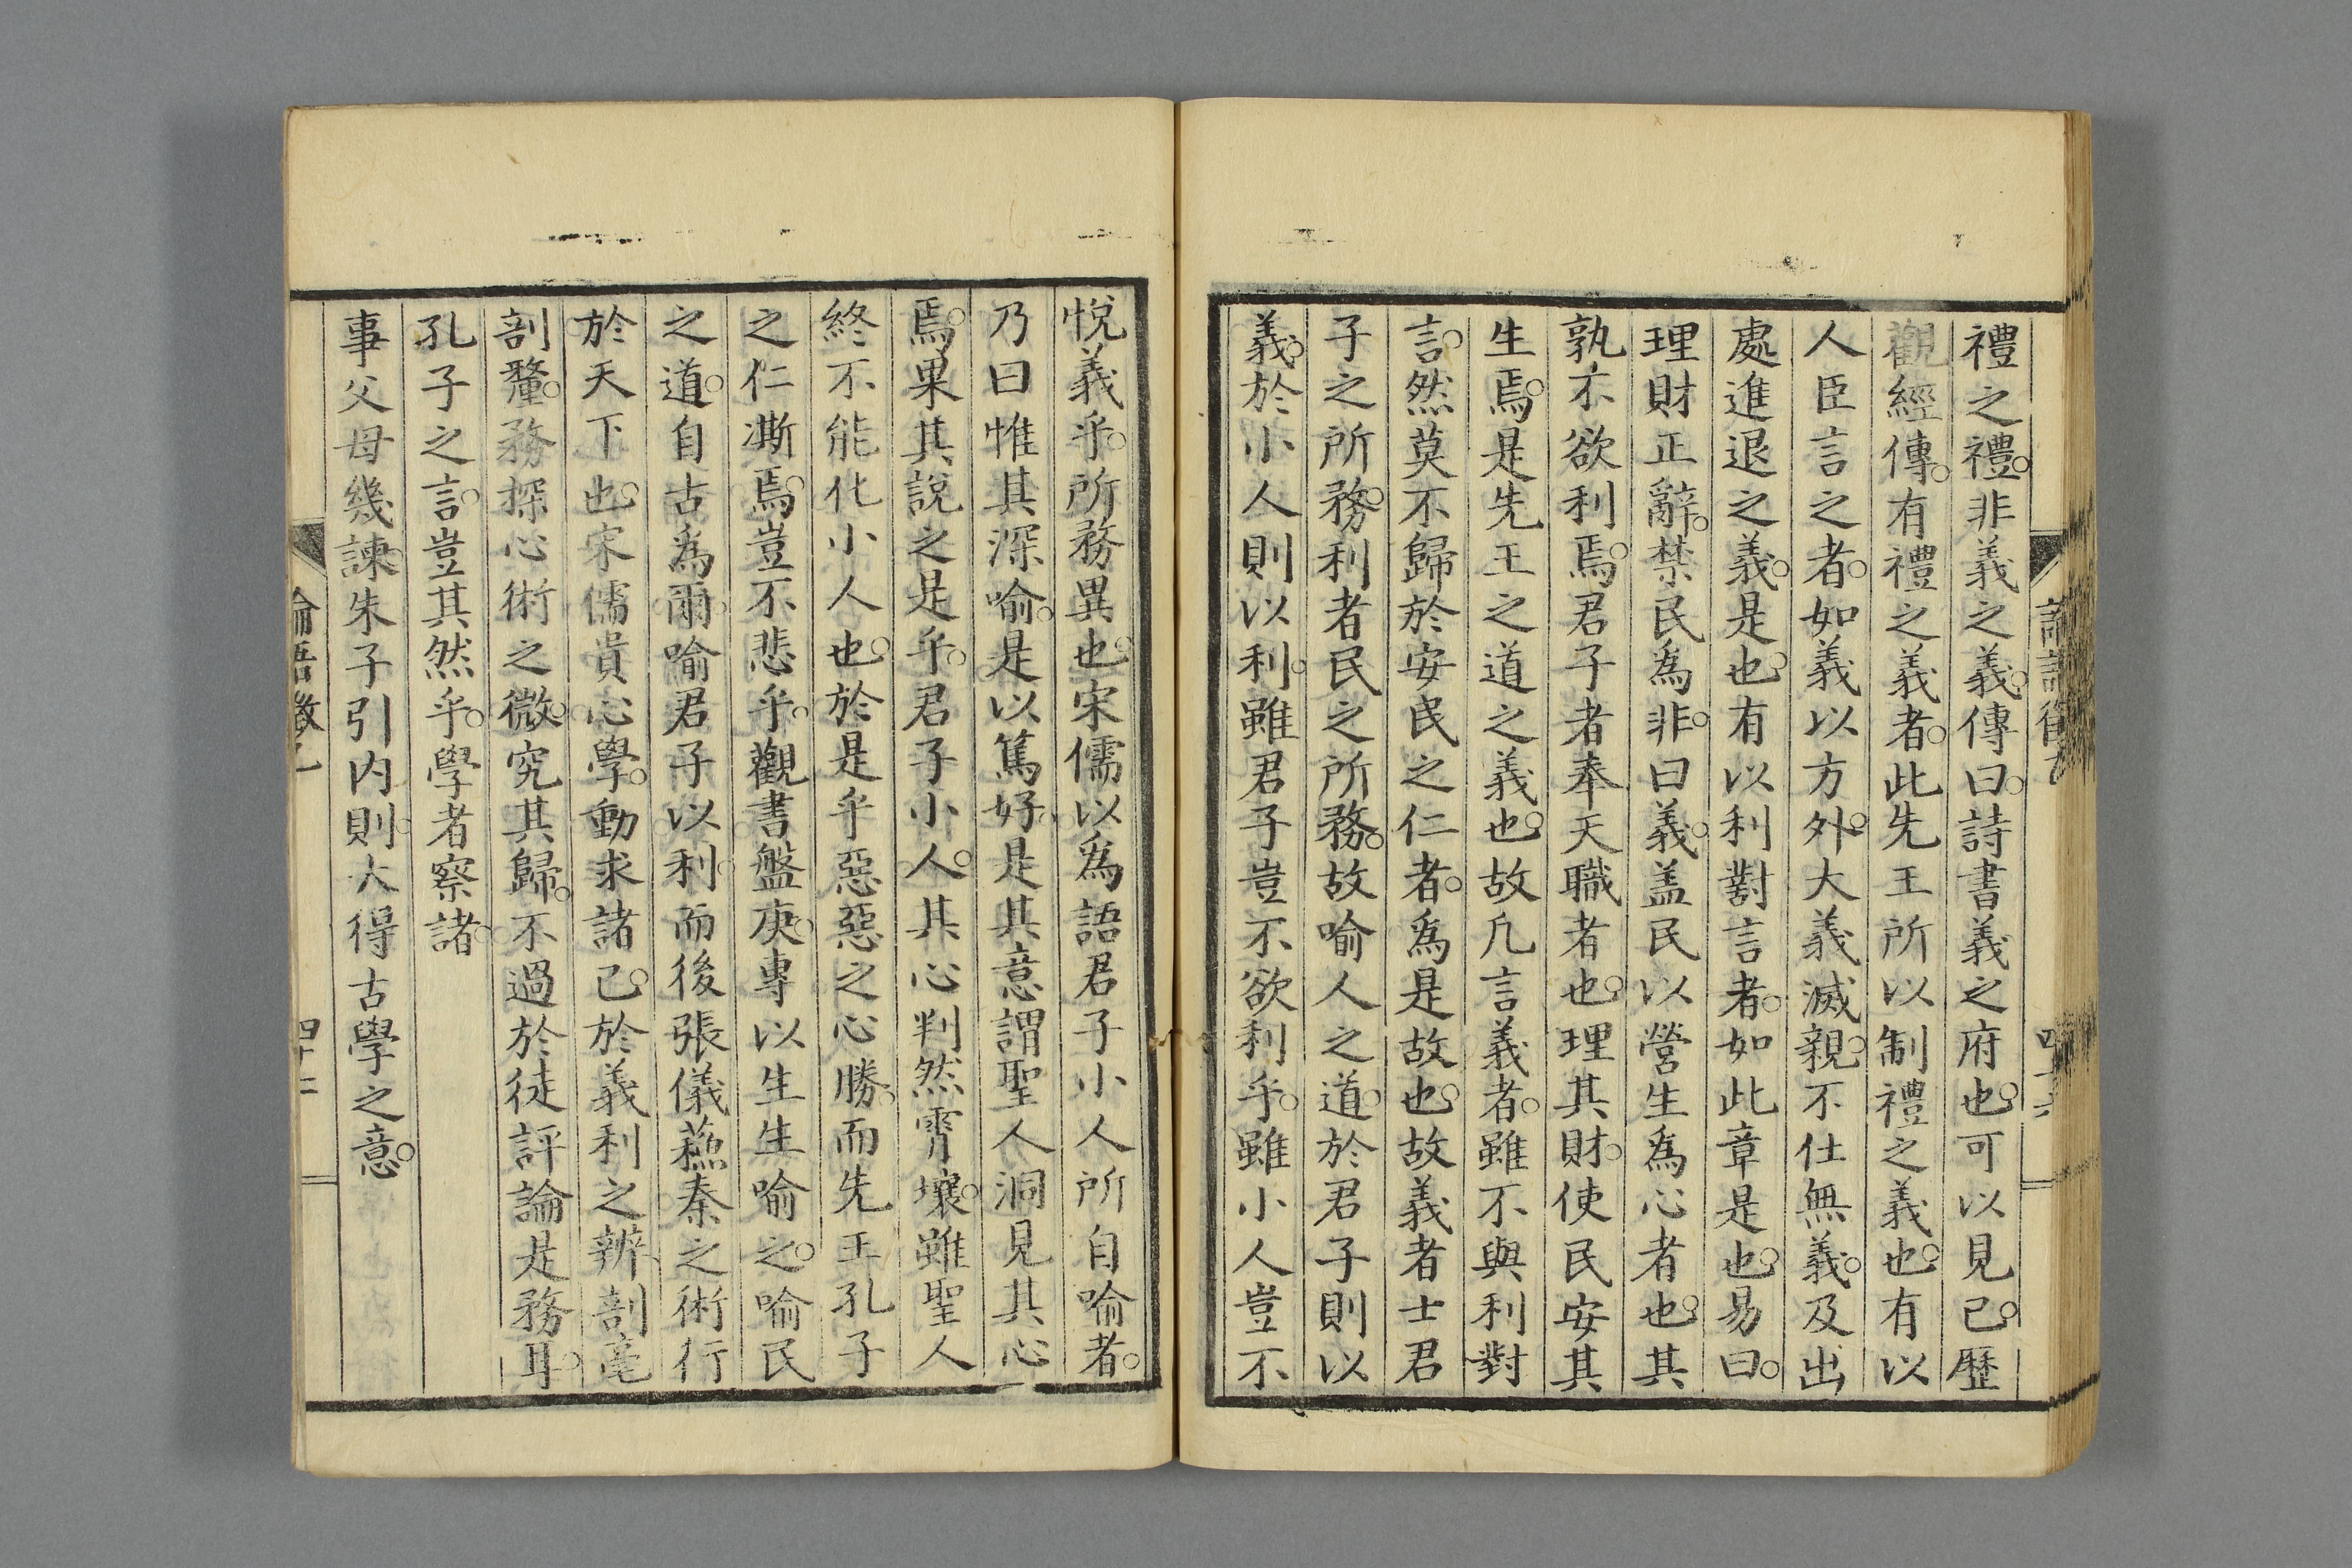 禮之禮。非義之義。傳曰。詩書義之府也。可以見已。歷
觀經傳。有禮之義者。此先王所以制禮之義也。有以
人臣言之者。如義以方外。大義滅親。不仕無義。及出
處進退之義。是也。有以利對言者。如此章是也。易曰。
理財正辭。禁民爲非。曰義。盖民以營生爲心者也。其
孰不欲利焉。君子者奉天職者也。理其財。使民安其
生焉。是先王之道之義也。故凡言義者。雖不與利對
言。然莫不歸於安民之仁者。爲是故也。故義者士君
子之所務。利者民之所務。故喻人之道。於君子則以
義。於小人則以利。雖君子豈不欲利乎。雖小人豈不
悅義乎。所務異也。宋儒以爲語君子小人所自喻者。
乃曰惟其深喻。是以篤好。是其意謂聖人洞見其心
焉。果其說之是乎。君子小人。其心判然霄壤。雖聖人
終不能化小人也。於是乎惡惡之心勝。而先王孔子
之仁澌焉。豈不悲乎。觀書盤庚。專以生生喻之。喻民
之道。自古爲爾。喻君子以利。而後張儀蘓秦之術行
於天下也。宋儒貴心學。動求諸己。於義利之辨。剖毫
剖釐。務探心術之微。究其歸。不過於徒評論是務耳。
孔子之言。豈其然乎。學者察諸。
事父母幾諫。朱子引内則。大得古學之意。
論語徵
四十二